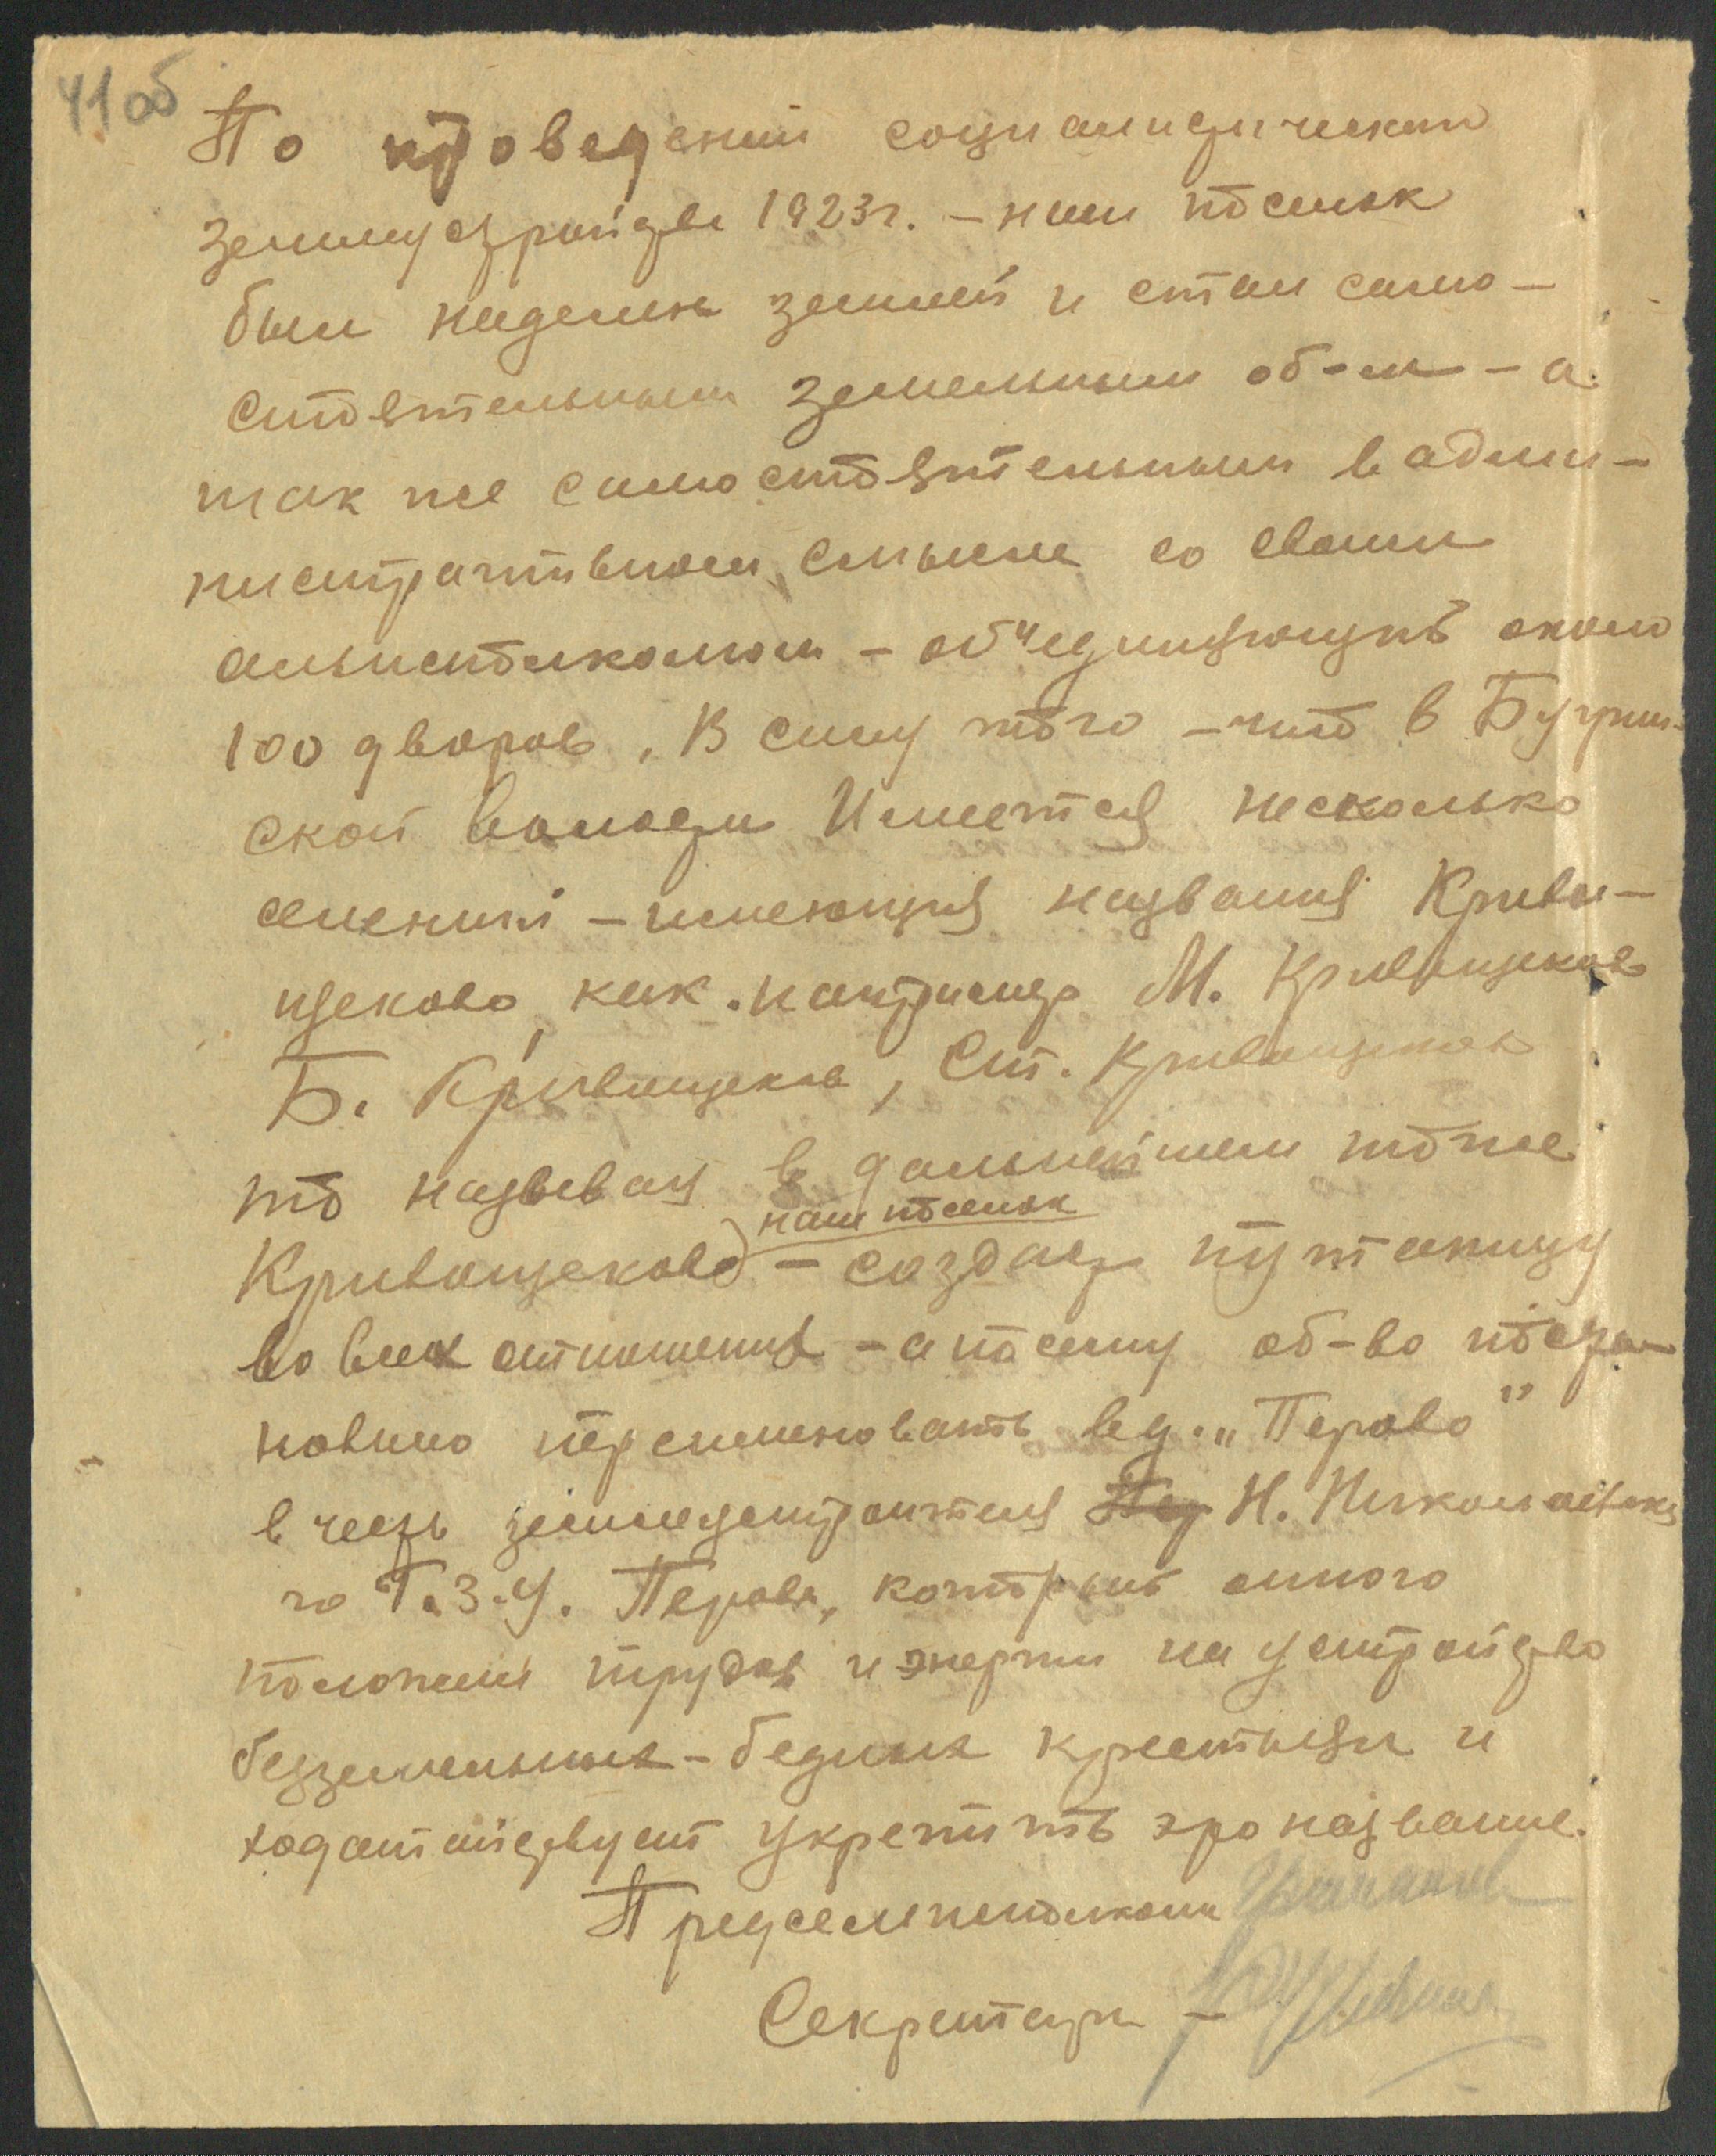 41 об
По проведении социалистическим
землеустройстве 1923 г. - наш поселок
был наделен землей и стал само-
стоятельным земельным об-м - а
так же самостоятельным в адми-
нистративном смысле со своим
сельисполкомом - об"единяющий около
100 дворов, В силу того - что в Бугрин-
ской волости Имеется несколько
селений - имеющия названия Криво-
щеково, как. например М. Кривощеково
Б. Кривощеково, Ст. Кривощеково
то называя в дальнейшем тоже
наш поселок
Кривощеково - создает путаницу
во всех отношениях - а посему об-во поста-
новило переименовать в д. „Перово"
в честь землеустроителя Пер Н. Николаевско
го Г.З.У. Перова, который много
положил трудов и энергии на устройство
безземельных - бедных крестьян и
ходатайствует укрепить это название.
Предселисполкома
Секретарь -